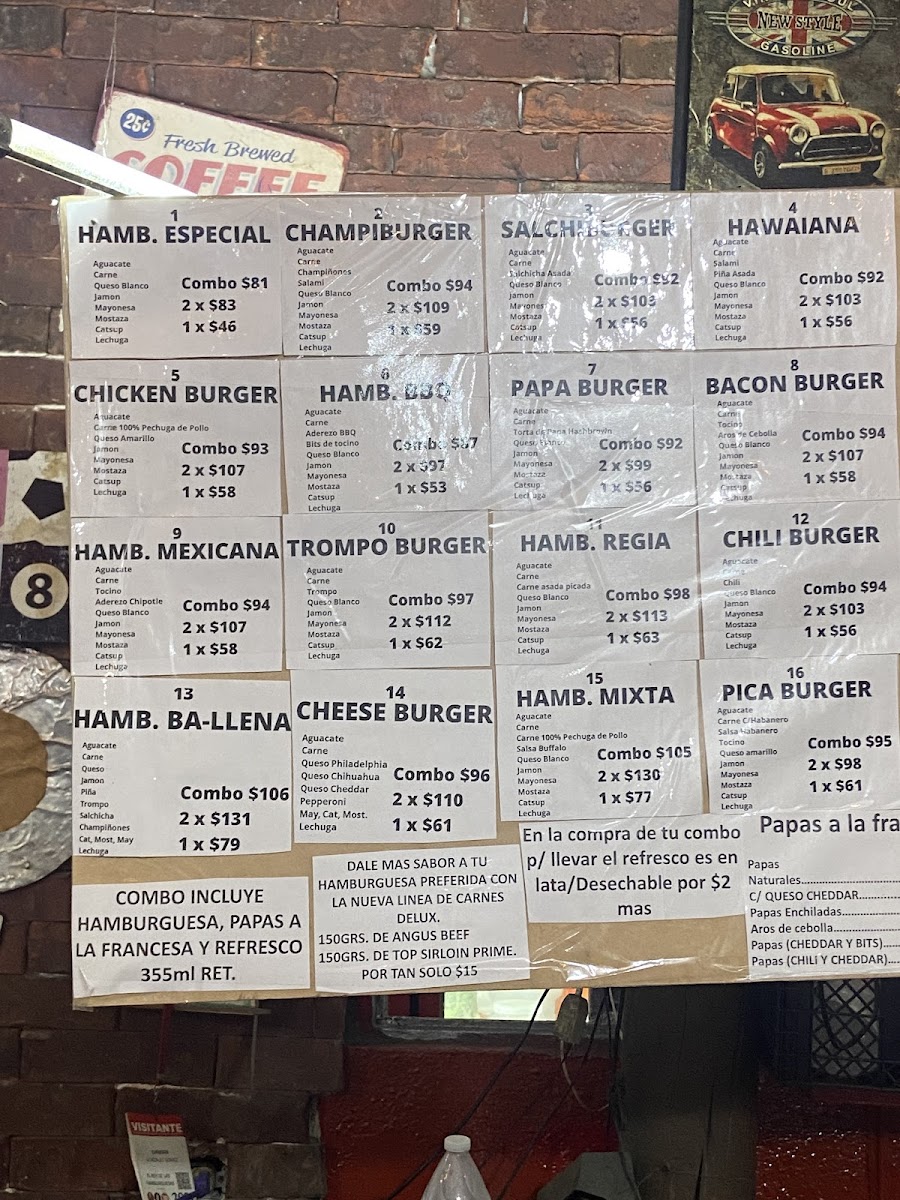 NEW STYLE
GASOLINE
25¢
Fresh Brewed
COFFEE
1
HAMB. ESPECIAL
Aguacate
Carne
Queso Blanco
Jamon
Mayonesa
Mostaza
Catsup
Lechuga
Combo $81
2 x $83
1 x $46
2
CHAMPIBURGER
Aguacate
Carne
Champiñones
Salami
Queso Blanco
Jamon
Mayonesa
Mostaza
Catsup
Lechuga
Combo $94
2 x $109
1 x $59
3
SALCHIBURGER
Aguacate
Carne
Salchicha Asada
Queso Blanco
Jamon
Mayonesa
Mostaza
Catsup
Lechuga
Combo $92
2 x $103
1 x $56
4
HAWAIANA
Aguacate
Carne
Salami
Piña Asada
Queso Blanco
Jamon
Mayonesa
Mostaza
Catsup
Lechuga
Combo $92
2 x $103
1 x $56
5
CHICKEN BURGER
Aguacate
Carne 100% Pechuga de Pollo
Queso Amarillo
Jamon
Mayonesa
Mostaza
Catsup
Lechuga
Combo $93
2 x $107
1 x $58
6
HAMB. BBQ
Aguacate
Carne
Aderezo BBQ
Bits de tocino
Queso Blanco
Jamon
Mayonesa
Mostaza
Catsup
Lechuga
Combo $87
2 x $97
1 x $53
7
PAPA BURGER
Aguacate
Carne
Torta de Papa Hashbrowin
Queso Blanco
Jamon
Mayonesa
Mostaza
Catsup
Lechuga
Combo $92
2 x $99
1 x $56
8
BACON BURGER
Aguacate
Carne
Tocino
Aros de Cebolla
Queso Blanco
Jamon
Mayonesa
Mostaza
Catsup
Lechuga
Combo $94
2 x $107
1 x $58
9
HAMB. MEXICANA
Aguacate
Carne
Tocino
Aderezo Chipotle
Queso Blanco
Jamon
Mayonesa
Mostaza
Catsup
Lechuga
Combo $94
2 x $107
1 x $58
10
TROMPO BURGER
Aguacate
Carne
Trompo
Queso Blanco
Jamon
Mayonesa
Mostaza
Catsup
Lechuga
Combo $97
2 x $112
1 x $62
11
HAMB. REGIA
Aguacate
Carne
Carne asada picada
Queso Blanco
Jamon
Mayonesa
Mostaza
Catsup
Lechuga
Combo $98
2 x $113
1 x $63
12
CHILI BURGER
Aguacate
Carne
Chili
Queso Blanco
Jamon
Mayonesa
Mostaza
Catsup
Lechuga
Combo $94
2 x $103
1 x $56
13
HAMB. BA-LLENA
Aguacate
Carne
Queso
Jamon
Piña
Trompo
Salchicha
Champiñones
Cat, Most, May
Lechuga
Combo $106
2 x $131
1 x $79
14
CHEESE BURGER
Aguacate
Carne
Queso Philadelphia
Queso Chihuahua
Queso Cheddar
Pepperoni
May, Cat, Most.
Lechuga
Combo $96
2 x $110
1 x $61
15
HAMB. MIXTA
Aguacate
Carne
Carne 100% Pechuga de Pollo
Salsa Buffalo
Queso Blanco
Jamon
Mayonesa
Mostaza
Catsup
Lechuga
Combo $105
2 x $130
1 x $77
16
PICA BURGER
Aguacate
Carne C/Habanero
Salsa Habanero
Tocino
Queso amarillo
Jamon
Mayonesa
Mostaza
Catsup
Lechuga
Combo $95
2 x $98
1 x $61
COMBO INCLUYE
HAMBURGUESA, PAPAS A
LA FRANCESA Y REFRESCO
355ml RET.
DALE MAS SABOR A TU
HAMBURGUESA PREFERIDA CON
LA NUEVA LINEA DE CARNES
DELUX.
150GRS. DE ANGUS BEEF
150GRS. DE TOP SIRLOIN PRIME.
POR TAN SOLO $15
En la compra de tu combo
p/ llevar el refresco es en
lata/Desechable por $2
mas
Papas a la fra
Papas
Naturales
C/ QUESO CHEDDAR
Papas Enchiladas
Aros de cebolla
Papas (CHEDDAR Y BITS)
Papas (CHILI Y CHEDDAR)
8
VISITANTE